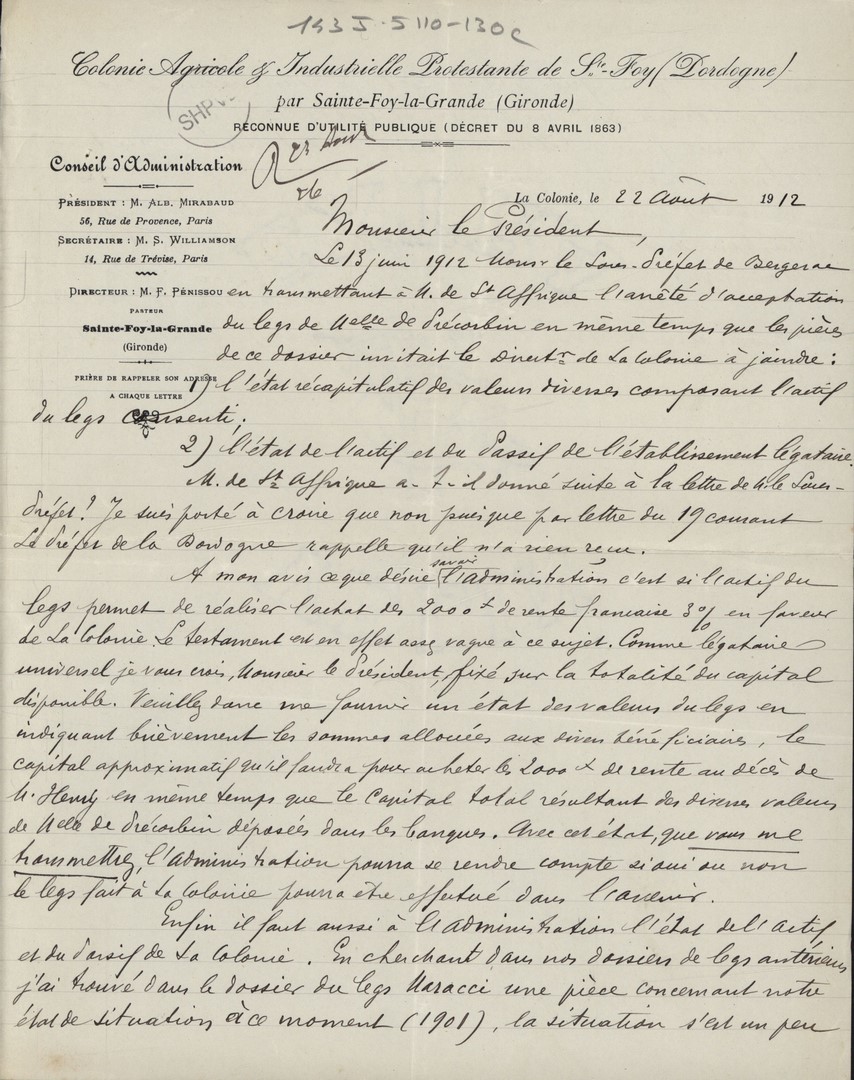 193 J. 5 110-130c
Colonie Agricole & Industrielle Protestante de Ste-Foy (Dordogne)
par Sainte-Foy-la-Grande (Gironde)
SHP
RECONNUE D'UTILITÉ PUBLIQUE (DÉCRET DU 8 AVRIL 1863)
R 23 Aout
Conseil d'Administration
PRÉSIDENT : M. ALB. MIRABAUD
56, Rue de Provence, Paris
SECRÉTAIRE : M. S. WILLIAMSON
14, Rue de Trévise, Paris
DIRECTEUR : M. F. PÉNISSOU
PASTEUR
Sainte-Foy-la-Grande
(Gironde)
PRIÈRE DE RAPPELER SON ADRESSE
A CHAQUE LETTRE
La Colonie, le 22 Août 1912
Monsieur le Président,
Le 13 juin 1912 Monsr le Sous-Préfet de Bergerac
en transmettant à M. de St Affrique l'arrêté d'acceptation
du legs de Melle de Précorbin en même temps que les pièces
de ce dossier invitait le Directr de La Colonie à joindre :
1) l'état récapitulatif des valeurs diverses composant l'actif
du legs consenti ;
2) l'état de l'actif et du Passif de l'établissement légataire.
M. de St Affrique a-t-il donné suite à la lettre de M. le Sous-
Préfet ? Je suis porté à croire que non puisque par lettre du 19 courant
Le Préfet de la Dordogne rappelle qu'il n'a rien reçu.
A mon avis ce que désire savoir l'administration c'est si l'actif du
legs permet de réaliser l'achat des 2000 f de rente française 3% en faveur
de La Colonie. Le testament est en effet assez vague à ce sujet. Comme légataire
universel je vous crois, Monsieur le Président, fixé sur la totalité du capital
disponible. Veuillez donc me fournir un état des valeurs du legs en
indiquant brièvement les sommes allouées aux divers bénéficiaires, le
capital approximatif qu'il faudra pour acheter les 2000 f de rente au décès de
M. Henry en même temps que le Capital total résultant des diverses valeurs
de Melle de Précorbin déposées dans les banques. Avec cet état, que vous me
transmettrez, l'administration pourra se rendre compte si oui ou non
le legs fait à La Colonie pourra être effectué dans l'avenir.
Enfin il faut aussi à l'administration l'état de l'actif
et du Passif de La Colonie. En cherchant dans nos dossiers de legs antérieurs
j'ai trouvé dans le dossier du legs Maracci une pièce concernant notre
état de situation à ce moment (1901), la situation s'est un peu